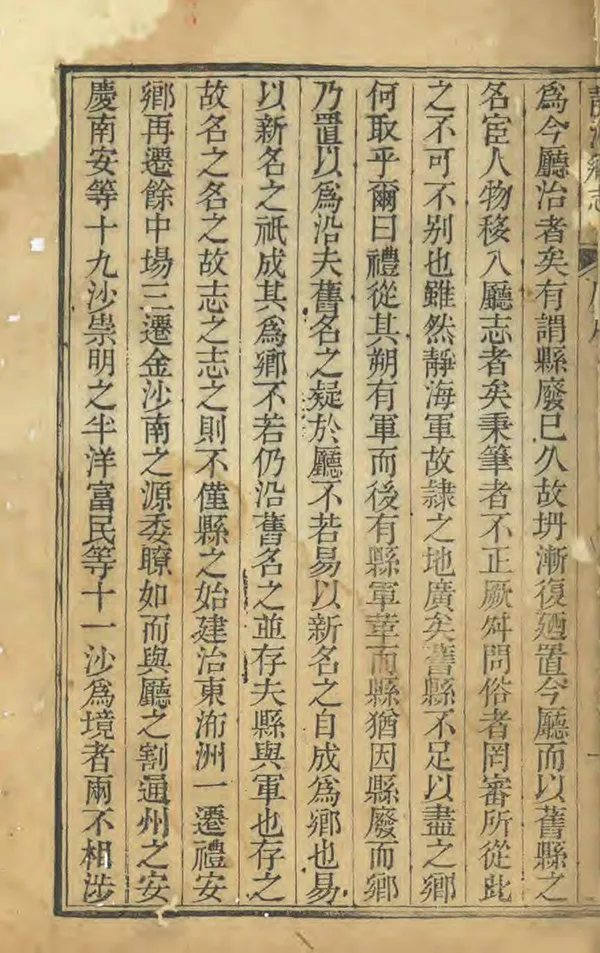 靜海鄉志
爲今廳治者矣有謂縣廢已久故坍漸復廼置今廳而以舊縣之
名宦人物移入廳志者矣秉筆者不正厥舛問俗者罔審所從此
之不可不別也雖然靜海軍故隸之地廣矣舊縣不足以盡之鄉
何取乎爾曰禮從其朔有軍而後有縣軍革而縣猶因縣廢而鄉
乃置以爲沿夫舊名之疑於廳不若易以新名之自成爲鄉也易
以新名之祇成其爲鄉不若仍沿舊名之並存夫縣與軍也存之
故名之名之故志之志之則不僅縣之始建治東洲一遷禮安
鄉再遷餘中場三遷金沙南之源委瞭如而與廳之割通州之安
慶南安等十九沙崇明之半洋富民等十一沙爲境者兩不相涉